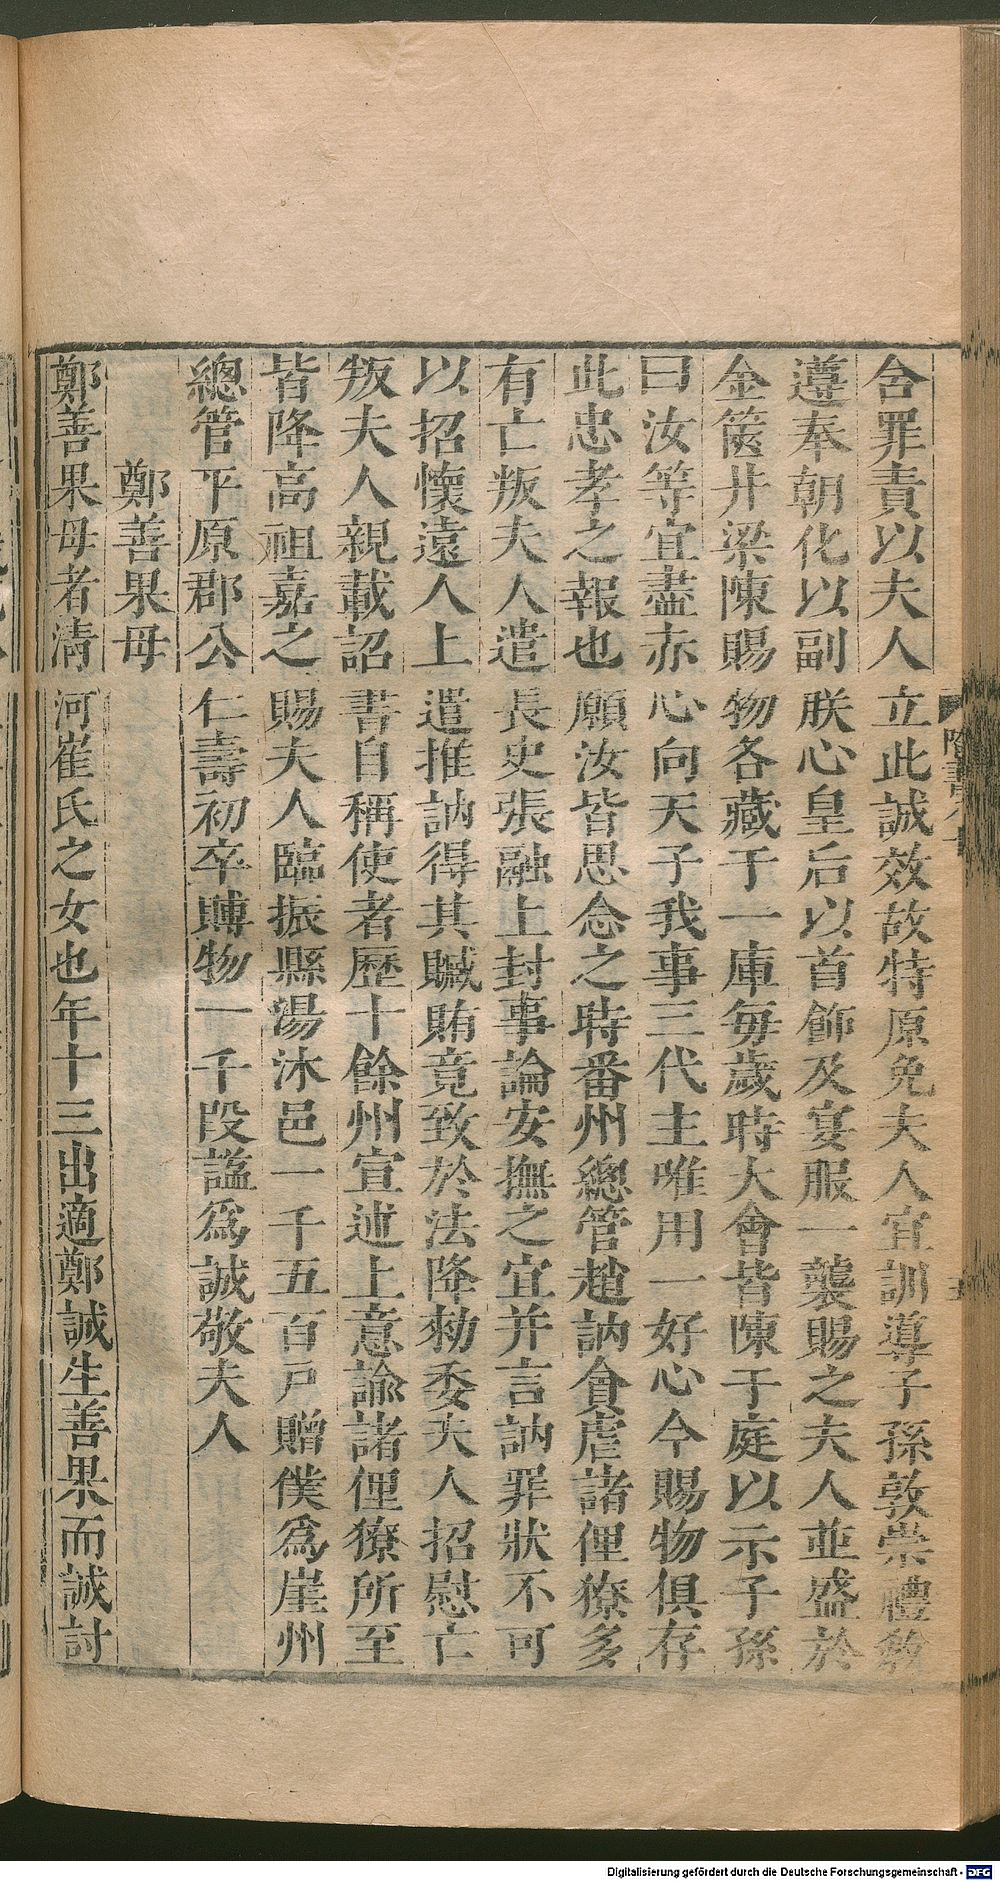 舍罪責以夫人立此誠效故特原免夫人宜訓導子孫敦崇禮敎
遵奉朝化以副朕心皇后以首飾及宴服一襲賜之夫人並盛於
金篋并梁陳賜物各藏于一庫每歲時大會皆陳于庭以示子孫
曰汝等宜盡赤心向天子我事三代主唯用一好心今賜物俱存
此忠孝之報也願汝皆思念之時番州總管趙訥貪虐諸俚獠多
有亡叛夫人遣長史張融上封事論安撫之宜并言訥罪狀不可
以招懷遠人上遣推訥得其贓賄竟致於法降勑委夫人招慰亡
叛夫人親載詔書自稱使者歷十餘州宣述上意諭諸俚獠所至
皆降高祖嘉之賜夫人臨振縣湯沐邑一千五百戶贈僕爲崖州
總管平原郡公仁壽初卒賻物一千段諡爲誠敬夫人
鄭善果母
鄭善果母者清河崔氏之女也年十三出適鄭誠生善果而誠討
Digitalisierung gefördert durch die Deutsche Forschungsgemeinschaft - DFG